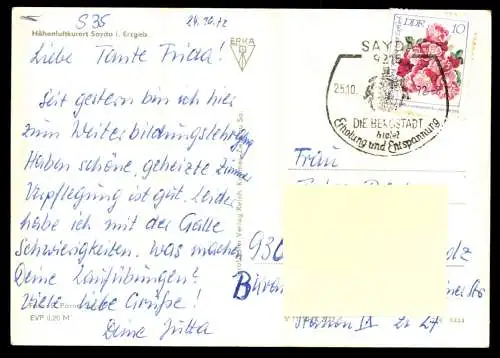 S35
24.10.72
Höhenluftkurort Sayda i. Erzgeb.
ERKA
Liebe Tante Frida!
Seit gestern bin ich hier
zum Weiterbildungslehrgang
Haben schöne, geheizte Zimmer
Verpflegung ist gut. Leider
habe ich mit der Galle
Schwierigkeiten. Was machen
Deine Laufübungen?
Viele liebe Grüße!
Deine Jutta
EVP 0,20 M
DDR 10
SAYDA
9215
25.10.
DIE BERGSTADT
bietet
Erholung und Entspannung
Frau
930
Station